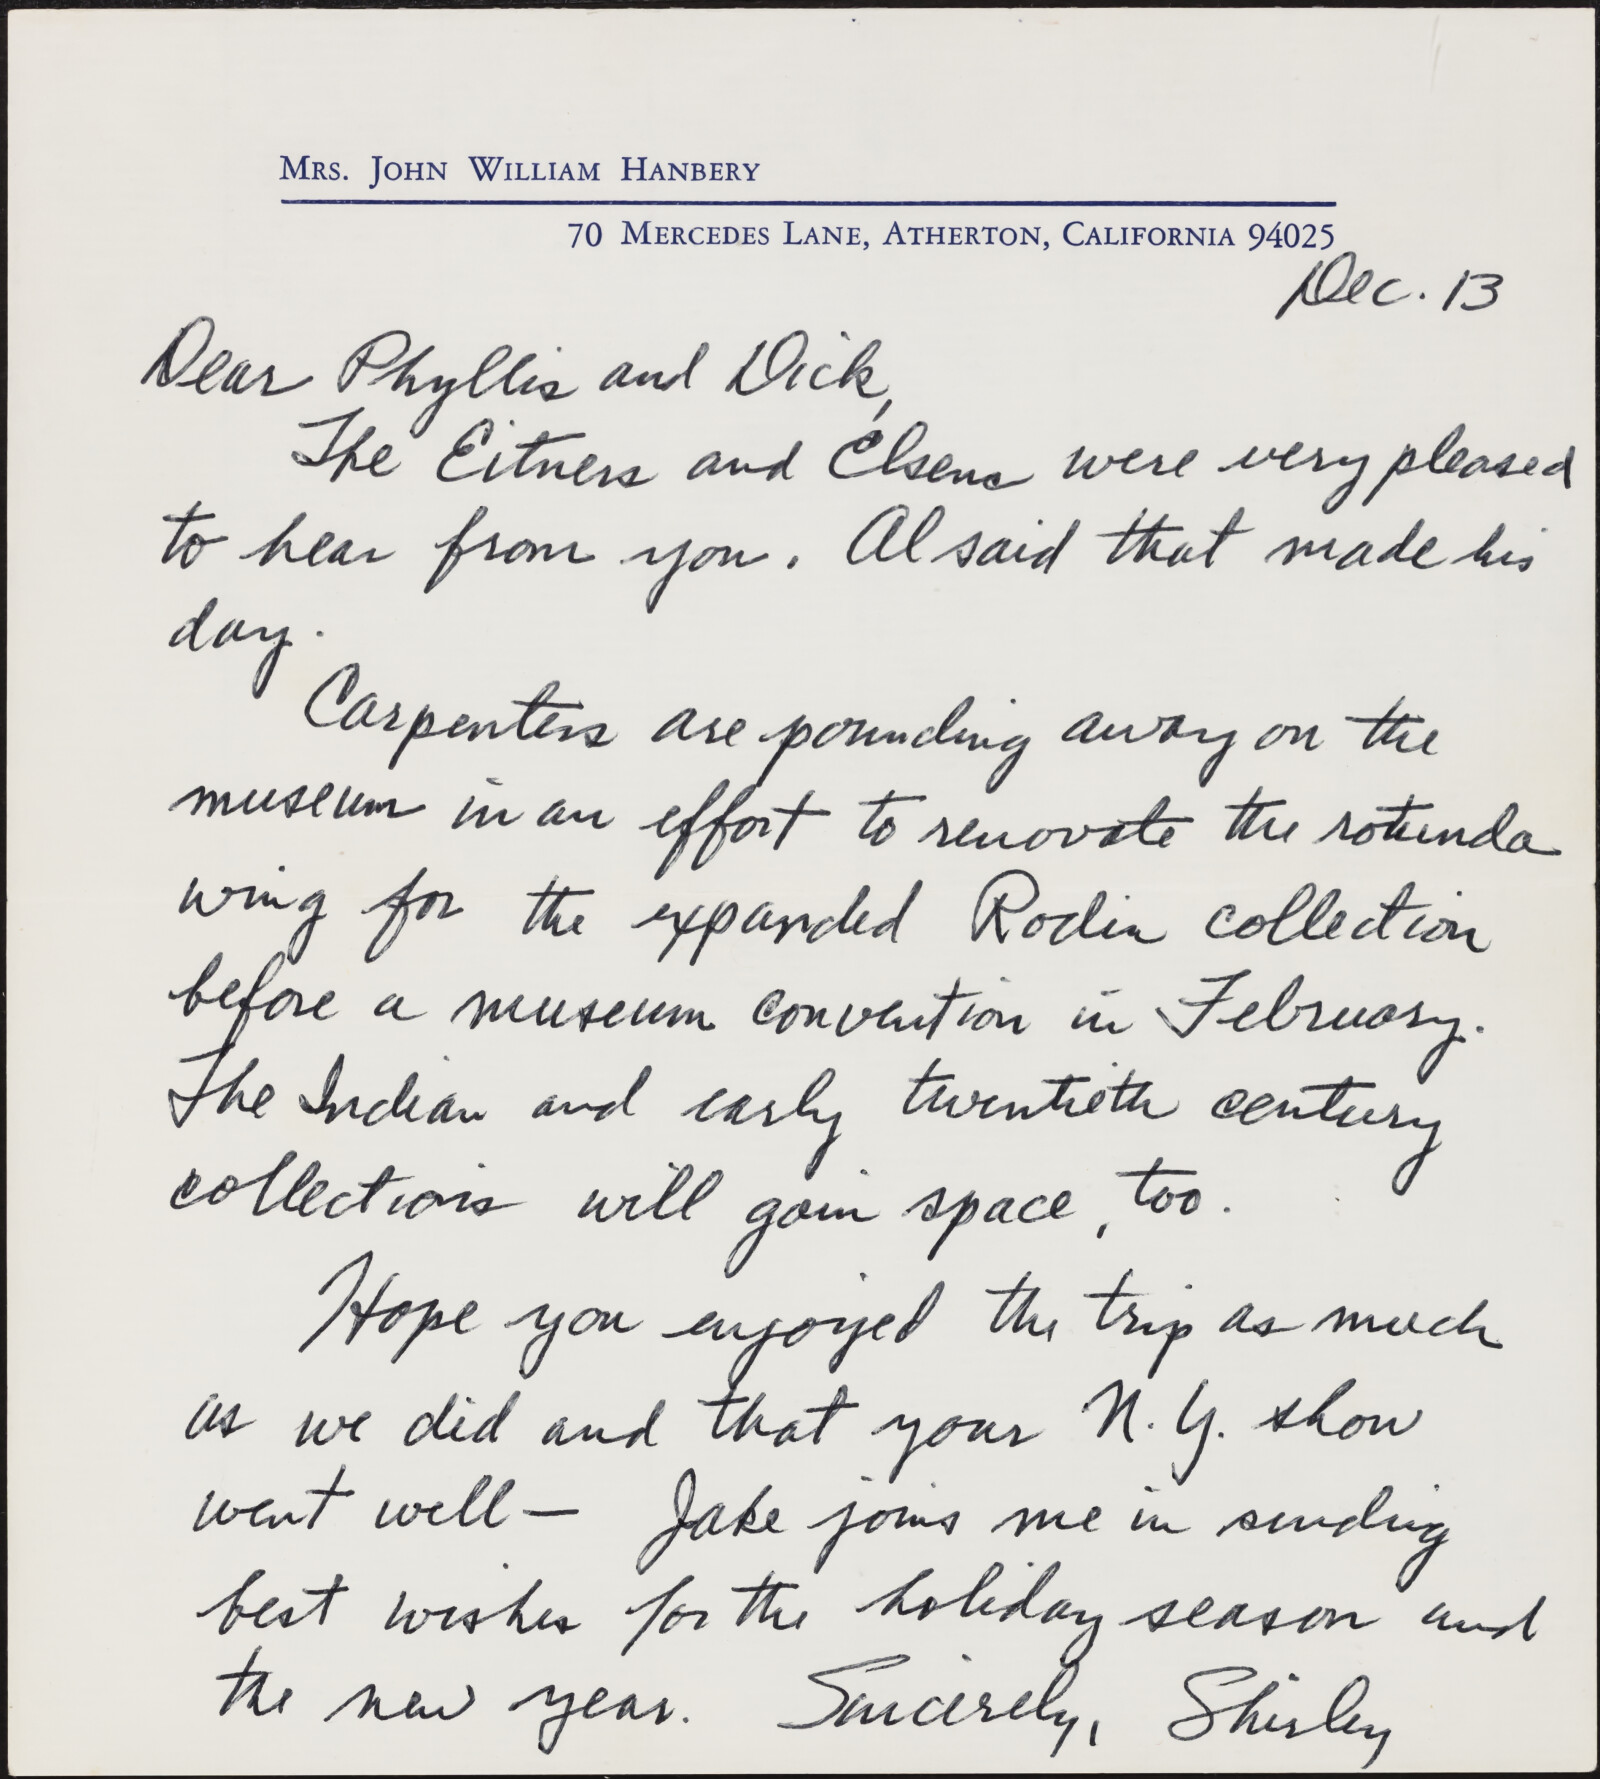 Mrs. John William Hanbery
70 Mercedes Lane, Atherton, California 94025
Dec. 13
Dear Phyllis and Dick,
The Eitners and Elsens were very pleased
to hear from you. Al said that made his
day.
Carpenters are pounding away on the
museum in an effort to renovate the rotunda
wing for the expanded Rodin collection
before a museum convention in February.
The Indian and early twentieth century
collections will gain space, too.
Hope you enjoyed the trip as much
as we did and that your N.Y. show
went well— Jake joins me in sending
best wishes for the holiday season and
the new year. Sincerely, Shirley